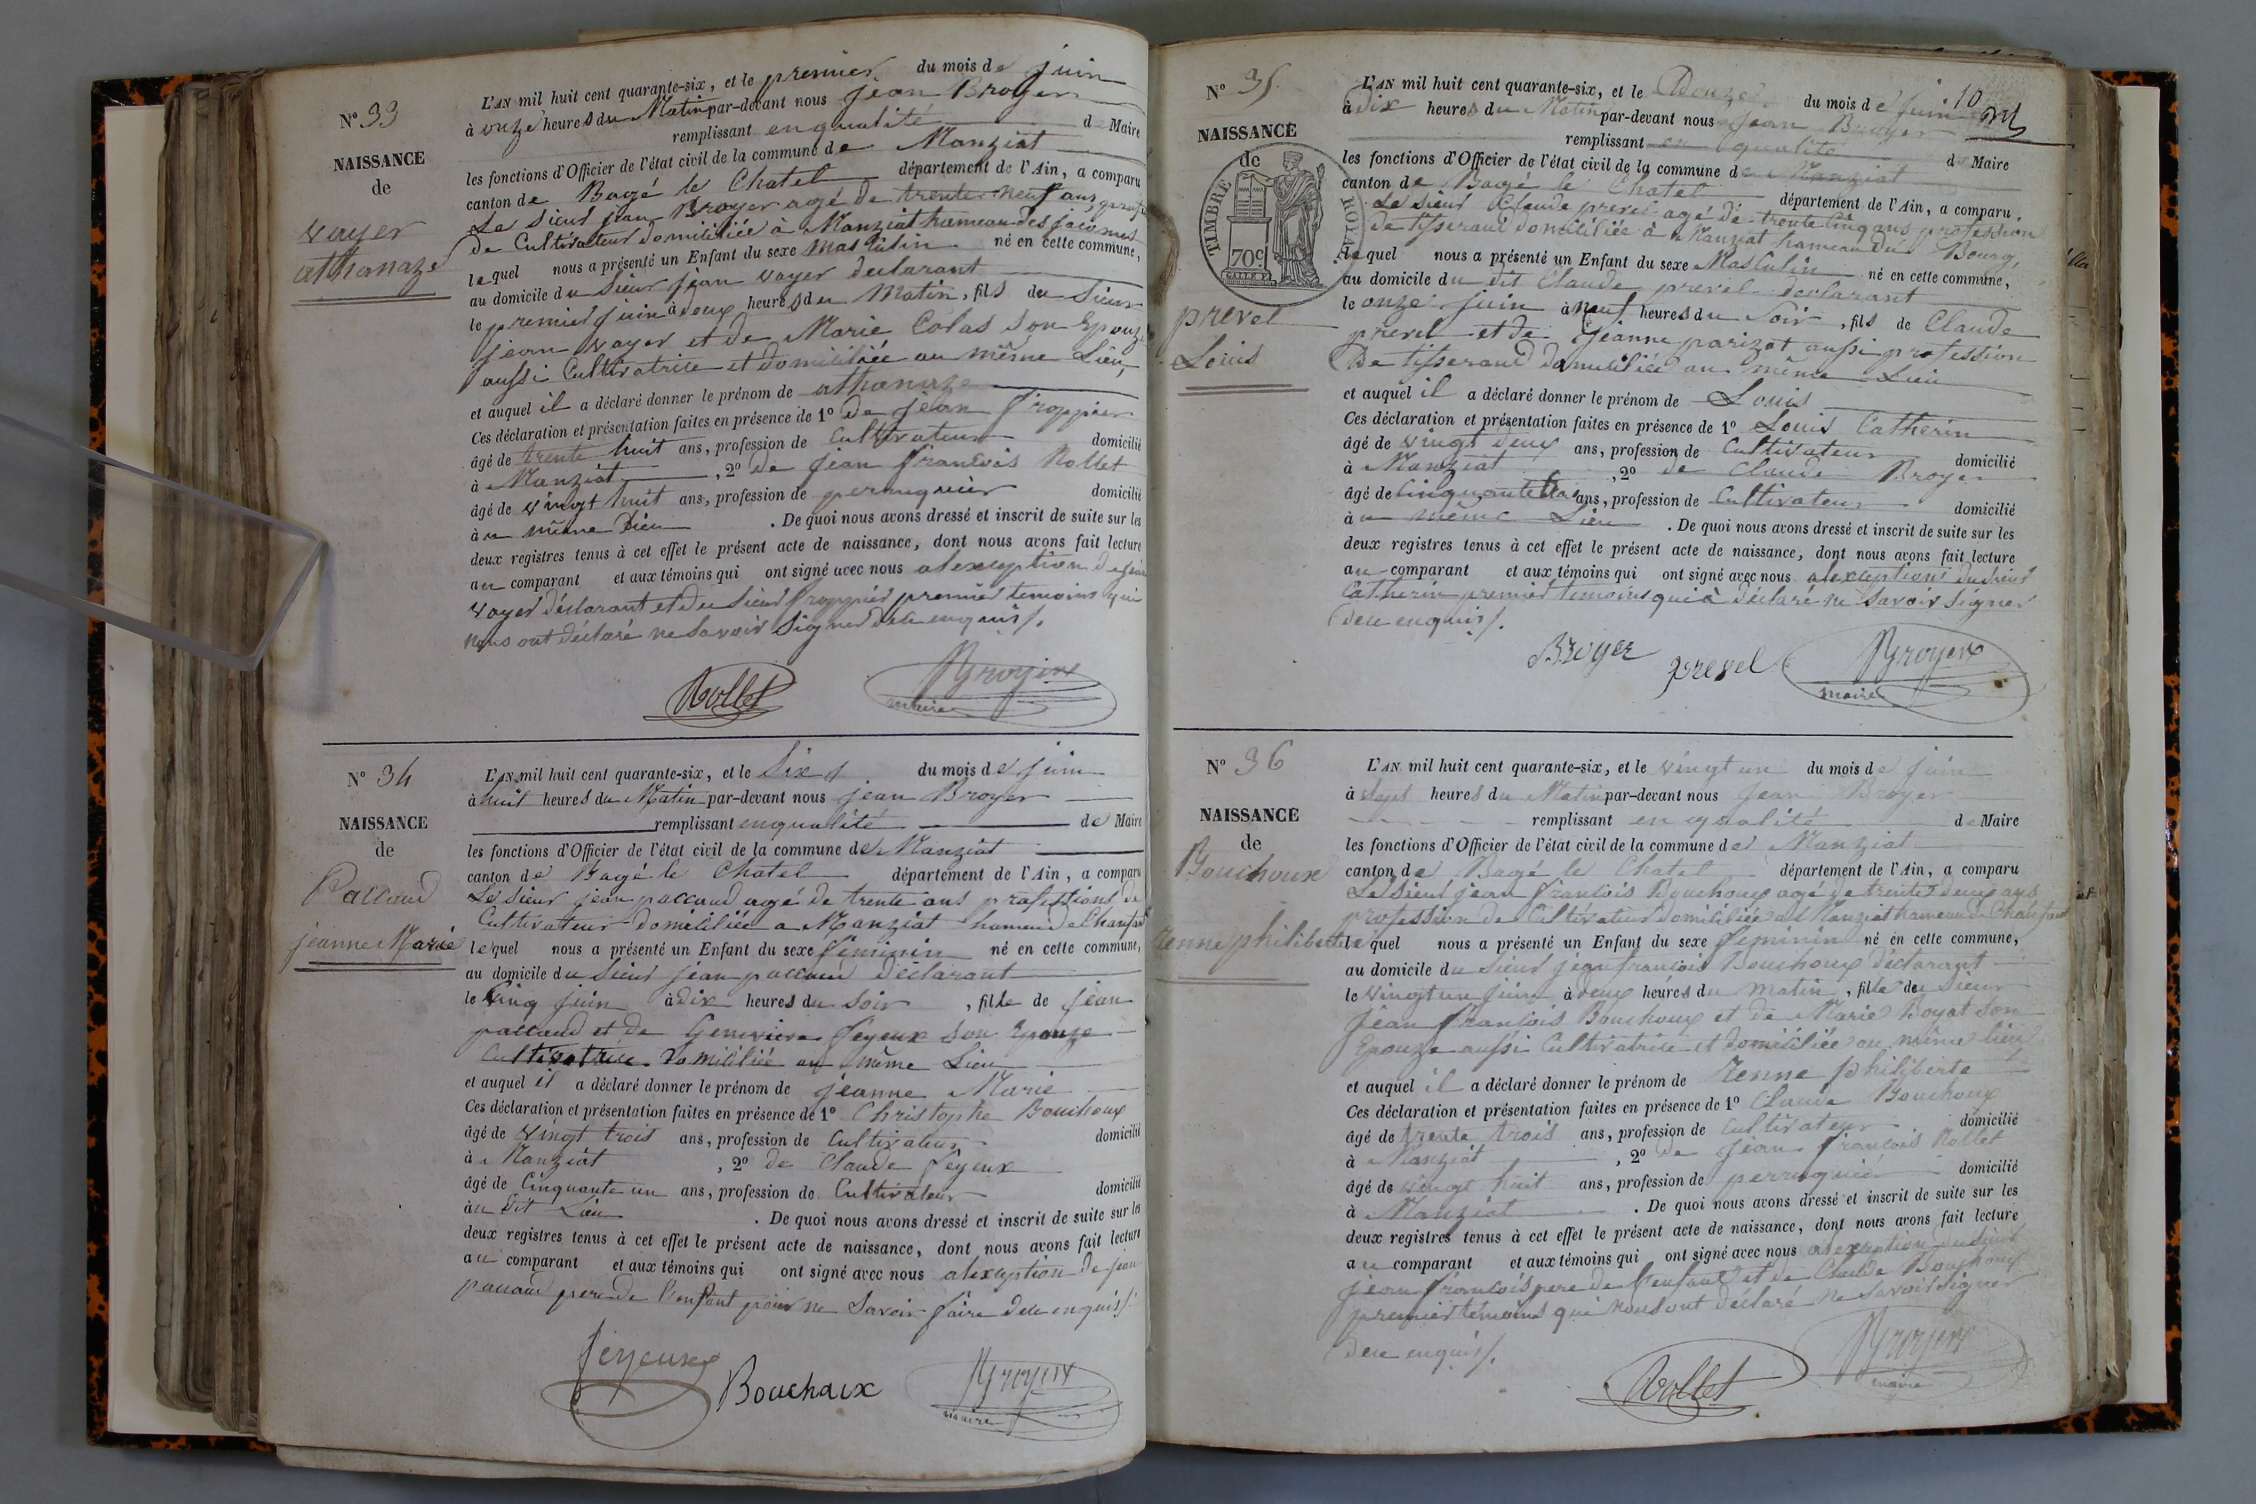 N° 33
NAISSANCE
de
vayer
athanaze
L'AN mil huit cent quarante-six, et le premier du mois de juin
à onze heures du Matin par-devant nous jean Broyer
remplissant en qualité de Maire
les fonctions d'Officier de l'état civil de la commune de Manziat
canton de Bagé le Chatel département de l'Ain, a comparu
Le Sieur jean Broyer agé de trente neuf ans,
de Cultivateur domiciliée à Manziat hameau des jacomes
lequel nous a présenté un Enfant du sexe Masculin né en cette commune,
au domicile du Sieur jean vayer declarant
le premier juin à deux heures du Matin, fils du Sieur
jean vayer et de Marie Colas son Epouze
aussi Cultivatrice et domiciliée au même Lieu,
et auquel il a déclaré donner le prénom de athanaze
Ces déclaration et présentation faites en présence de 1° de jean froppier
âgé de trente huit ans, profession de Cultivateur domicilié
à Manziat, 2° de jean francois Rollet
âgé de vingt huit ans, profession de perruquier domicilié
au même Lieu. De quoi nous avons dressé et inscrit de suite sur les
deux registres tenus à cet effet le présent acte de naissance, dont nous avons fait lecture
au comparant et aux témoins qui ont signé avec nous alexception de jean
vayer déclarant et du Sieur froppier premier temoins qui
nous ont déclaré ne Savoir Signer dece enquis/.
Rollet
Broyer
maire
N° 34
NAISSANCE
de
Paccaud
jeanne Marie
L'AN mil huit cent quarante-six, et le Six du mois de juin
à huit heures du Matin par-devant nous jean Broyer
remplissant en qualité de Maire
les fonctions d'Officier de l'état civil de la commune de Manziat
canton de Bagé le Chatel département de l'Ain, a comparu
Le Sieur jean paccaud agé de trente ans professions de
Cultivateur domiciliée a Manziat hameau de Chanfant
lequel nous a présenté un Enfant du sexe féminin né en cette commune,
au domicile du Sieur jean paccaud déclarant
le Cinq juin à dix heures du Soir, fille de jean
paccaud et de Genevieve feyeux son Epouze
Cultivatrice domiciliée au même Lieu
et auquel il a déclaré donner le prénom de jeanne Marie
Ces déclaration et présentation faites en présence de 1° Christophe Bouchoux
âgé de vingt trois ans, profession de Cultivateur domicilié
à Manziat, 2° de Claude feyeux
âgé de Cinquante un ans, profession de Cultivateur domicilié
au dit Lieu. De quoi nous avons dressé et inscrit de suite sur les
deux registres tenus à cet effet le présent acte de naissance, dont nous avons fait lecture
au comparant et aux témoins qui ont signé avec nous alexception de jean
paccaud pere de l'enfant pour ne Savoir faire dece enquis/.
feyeux
Bouchoux
Broyer
maire
10
N° 35
NAISSANCE
de
TIMBRE ROYAL
70c
prevel
Louis
L'AN mil huit cent quarante-six, et le Douze du mois de juin
à dix heures du Matin par-devant nous jean Broyer
remplissant en qualité de Maire
les fonctions d'Officier de l'état civil de la commune de Manziat
canton de Bagé le Chatel département de l'Ain, a comparu
Le Sieur Claude prevel agé de trente Cinq ans profession
de tisserand domiciliée à Manziat hameau du Bourg,
lequel nous a présenté un Enfant du sexe Masculin né en cette commune,
au domicile du dit Claude prevel declarant
le onze juin à neuf heures du Soir, fils de Claude
prevel et de jeanne parizot aussi profession
De tisserand domiciliée au même Lieu
et auquel il a déclaré donner le prénom de Louis
Ces déclaration et présentation faites en présence de 1° Louis Catherin
âgé de vingt deux ans, profession de Cultivateur domicilié
à Manziat, 2° de Claude Broyer
âgé de Cinquante trois ans, profession de Cultivateur domicilié
au même Lieu. De quoi nous avons dressé et inscrit de suite sur les
deux registres tenus à cet effet le présent acte de naissance, dont nous avons fait lecture
au comparant et aux témoins qui ont signé avec nous alexceptions du Sieur
Catherin premier temoins qui à déclaré ne Savoir Signer
dece enquis/.
Broyer
prevel
Broyer
maire
N° 36
NAISSANCE
de
Bouchoux
Renne philiberte
L'AN mil huit cent quarante-six, et le vingt un du mois de juin
à Sept heures du Matin par-devant nous jean Broyer
remplissant en qualité de Maire
les fonctions d'Officier de l'état civil de la commune de Manziat
canton de Bagé le Chatel département de l'Ain, a comparu
Le Sieur jean francois Bouchoux agé de trente deux ans
profession de Cultivateur domiciliée a Manziat hameau de Chanfant
lequel nous a présenté un Enfant du sexe feminin né en cette commune,
au domicile du Sieur jean francois Bouchoux déclarant
le vingt un juin à deux heures du matin, fille du Sieur
jean francois Bouchoux et de Marie Boyat son
Epouze aussi Cultivatrice et domiciliée au même lieu
et auquel il a déclaré donner le prénom de Renne philiberte
Ces déclaration et présentation faites en présence de 1° Claude Bouchoux
âgé de trente trois ans, profession de Cultivateur domicilié
à Manziat, 2° de jean francois Rollet
âgé de vingt huit ans, profession de perruquié domicilié
à Manziat. De quoi nous avons dressé et inscrit de suite sur les
deux registres tenus à cet effet le présent acte de naissance, dont nous avons fait lecture
au comparant et aux témoins qui ont signé avec nous alexception du Sieur
jean francois pere de l'enfant et de Claude Bouchoux
premier temoins qui nous ont déclaré ne Savoir Signer
dece enquis/.
Rollet
Broyer
maire